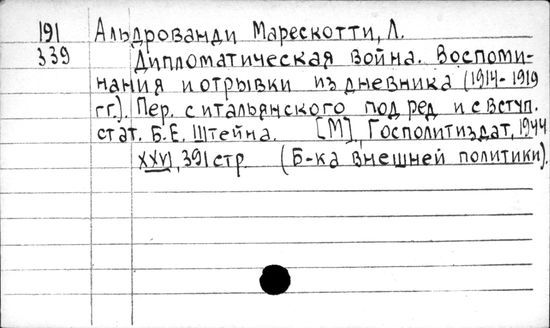 191 Альдрованди Марескотти, Л.
339 Дипломатическая война. Воспоми-
нания и отрывки из дневника (1914-1919
гг.). Пер. с итальянского под ред и с вступ.
стат. Б.Е. Штейна. [М], Госполитиздат, 1944
XXVI, 391 стр (Б-ка внешней политики).